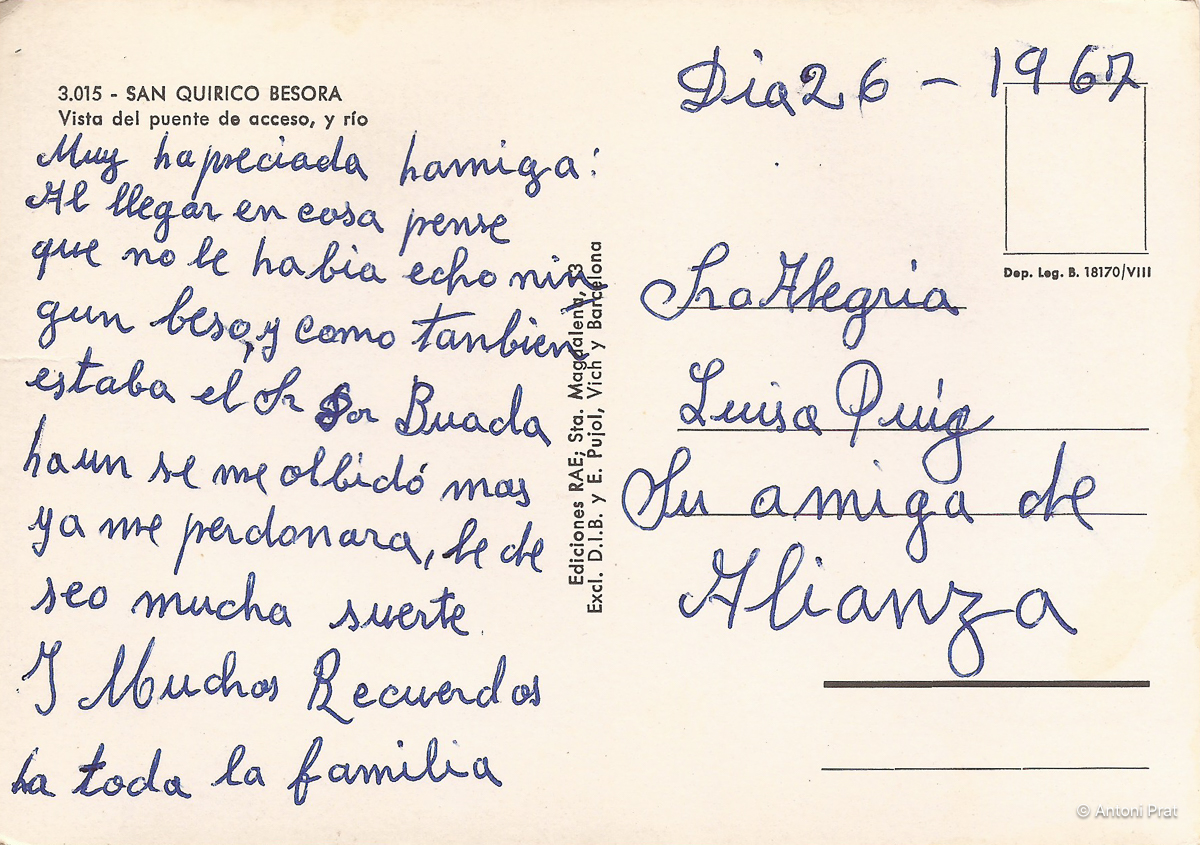 3.015 - SAN QUIRICO BESORA
Vista del puente de acceso, y río
Muy hapreciada hamiga:
Al llegar en cosa pense
que no le habia echo nin
gun beso, y como tanbien
estaba el Sr Buada
haun se me olbidó mas
ya me perdonara, le de
seo mucha suerte
Y Muchos Recuerdos
ha toda la familia
Ediciones RAE; Sta. Magdalena,
Excl. D.I.B. y E. Pujol, Vich y Barcelona
Dia 26 - 1967
Dep. Leg. B. 18170/VIII
Sra Alegria
Luisa Puig
Su amiga de
Alianza
© Antoni Prat